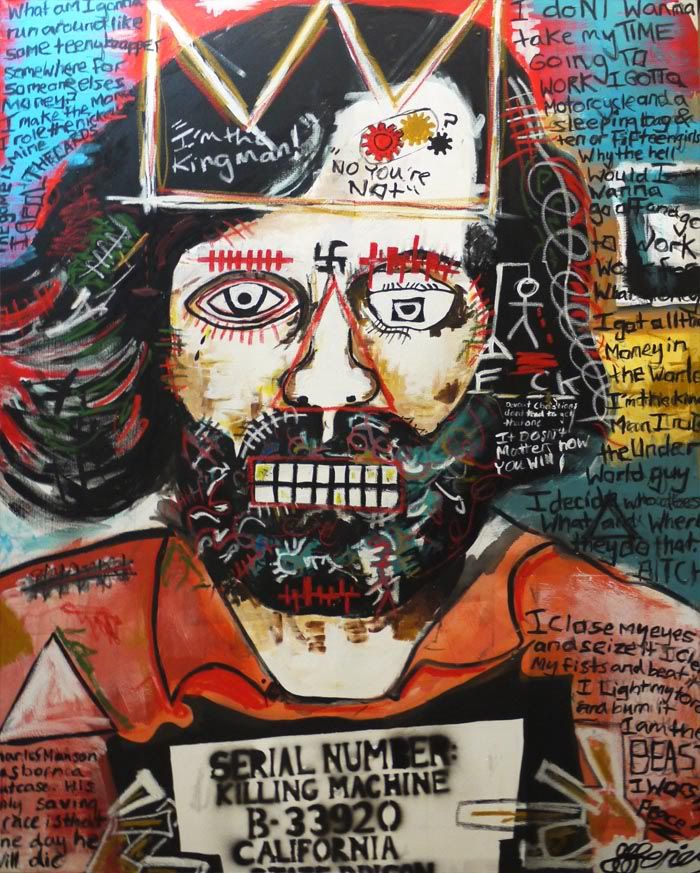 What am I gonna
run around like
some teenybopper
somewhere for
someone elses
Money? I Make
Money I make the
I role the nickels
mine
I deal THE CARDS
The game is
"I'm the
King man!"
?
"No You're
Not"
I doNt Wanna
take my TIME
Going TO
WORK I GOTTA
Motorcycle and a
sleeping bag &
ten or Fifteen girls
Why the hell
Would I
Wanna
go off and go
to Work
Work for
What
I got all the
Money in
the World
I'm the king
Man I rule
the Under
World guy
I decide who does
What and When
they do that
BITCH
F CK
Devout Christians
IT DOSN'T
Matter how
YOU WIN!
I close my eyes
and seize it I
My fists and beat it
I Light my
and burn it
I am the
BEAST
I Wors
Charles Manson
was born a
outcase. His
only saving
grace is that
one day he
will die
SERIAL NUMBER:
KILLING MACHINE
B-33920
CALIFORNIA
STATE PRISON